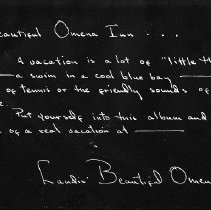 eautiful Omena Inn . . .
A vacation is a lot of "little th
— a swim in a cool blue bay —
of tennis or the friendly sounds of
Put yourself into this album and
of a real vacation at —
Landis' Beautiful Omen